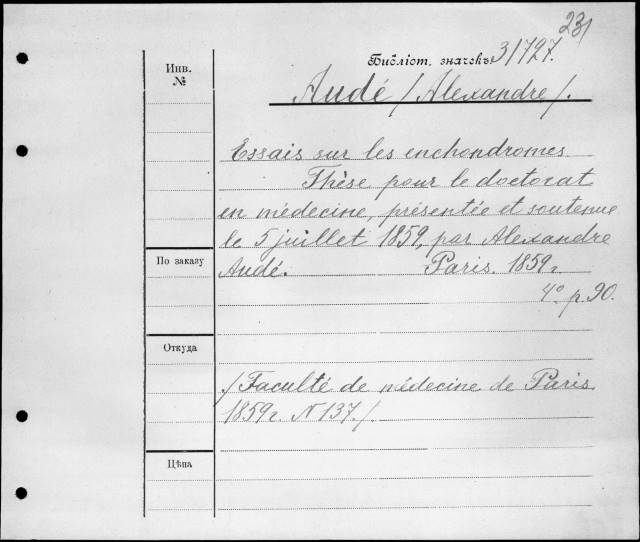 231
Инв.
№
Библіот. значекъ 31727.
Audé /Alexandre/.
Essais sur les enchondromes.
Thèse pour le doctorat
en médecine, présentée et soutenue
le 5 juillet 1859, par Alexandre
По заказу
Audé. Paris. 1859 г.
4° p. 90.
Откуда
/Faculté de médecine de Paris.
1859 г. N 137./
Цѣна